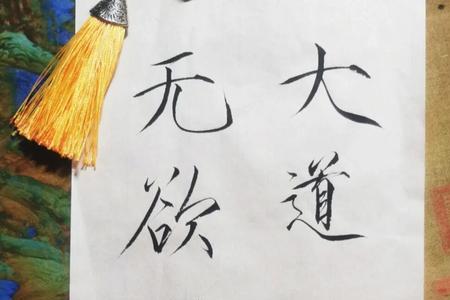 大道
无欲